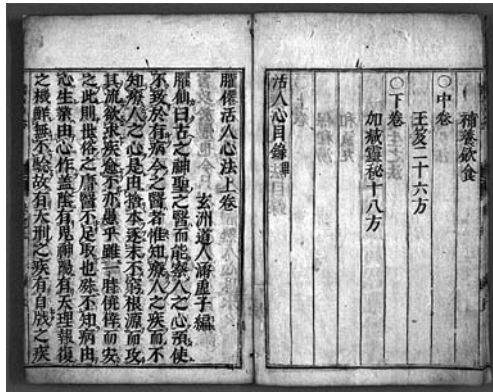 補養飲食
○中卷
玉笈二十六方
○下卷
加減靈秘十八方
活人心目錄畢
臞僊活人心法上卷
玄洲道人涵虛子編
臞仙曰古之神聖之醫而能療人之心預使
不致於有病今之醫者惟知療人之疾而不
知療人之心是由捨本逐末不窮根源而攻
其流欲求疾愈不亦愚乎雖一時僥倖而安
之此則世俗之庸醫不足取也殊不知病由
心生業由心作盖陰有鬼神陽有天理報復
之機鮮無不驗故有天刑之疾有自戕之疾